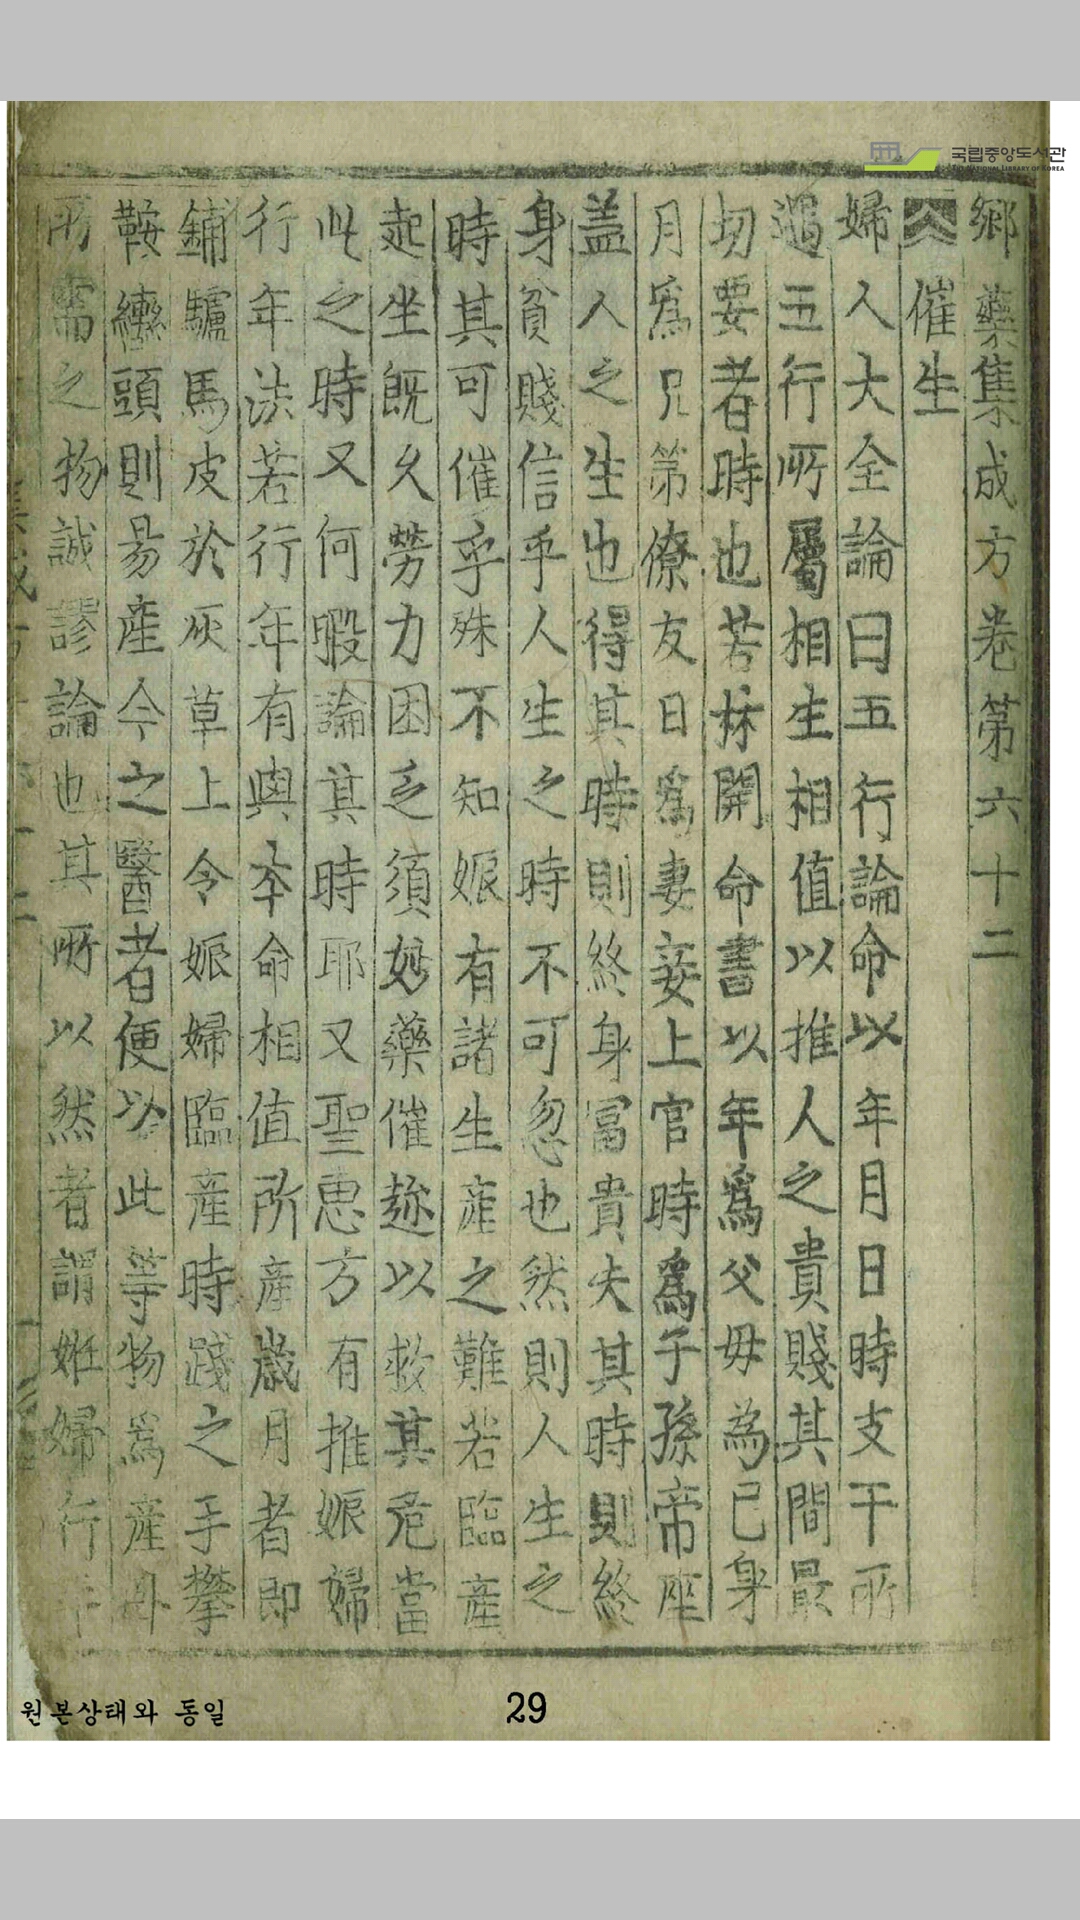 국립중앙도서관
THE NATIONAL LIBRARY OF KOREA
鄕藥集成方卷第六十二
催生
婦人大全論曰五行論命以年月日時支干所
遇五行所屬相生相値以推人之貴賤其間最
切要者時也若拆開命書以年爲父母為已身
月爲兄第僚友日爲妻妾上官時爲子孫帝座
盖人之生也得其時則終身冨貴失其時則終
身貧賤信乎人生之時不可忽也然則人生之
時其可催乎殊不知娠有諸生産之難若臨産
起坐旣久勞力困乏須妙藥催趂以救其危當
此之時又何暇論其時耶又聖惠方有推娠婦
行年法若行年有與本命相値所産歲月者即
鋪驢馬皮於灰草上令娠婦臨産時踐之手攀
鞍轡頭則易産今之醫者便以此等物爲産
所需之物誠謬論也其所以然者謂姙婦行年
원본상태와 동일
29